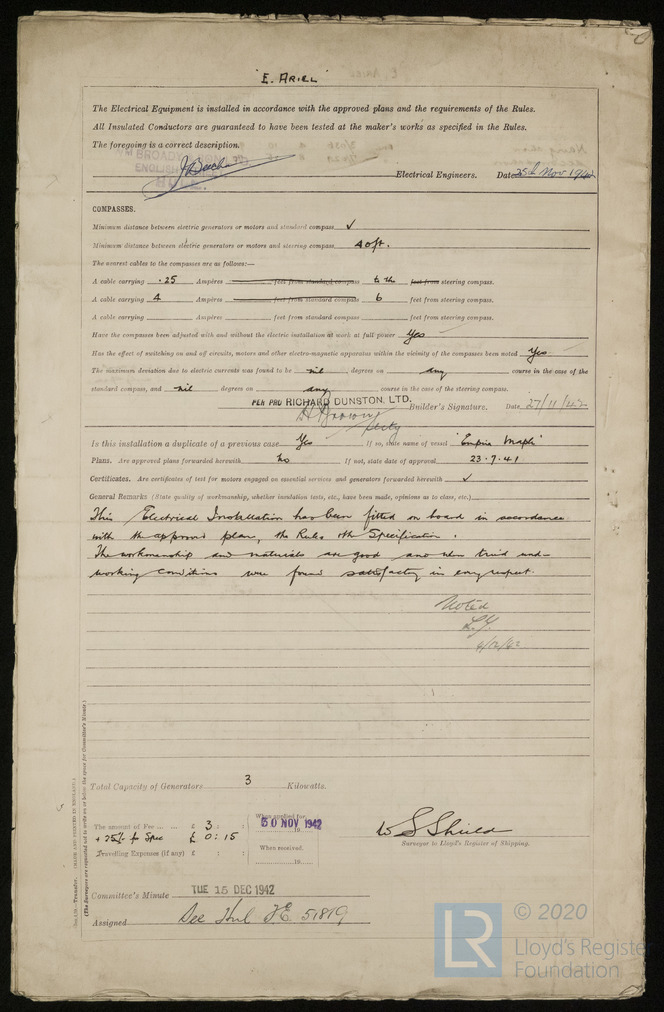 "E. ARIEL"
The Electrical Equipment is installed in accordance with the approved plans and the requirements of the Rules.
All Insulated Conductors are guaranteed to have been tested at the maker's works as specified in the Rules.
The foregoing is a correct description.
Electrical Engineers. Date 25th Nov 1942
COMPASSES.
Minimum distance between electric generators or motors and standard compass ✓
Minimum distance between electric generators or motors and steering compass 40ft.
The nearest cables to the compasses are as follows:—
A cable carrying .25 Ampères feet from standard compass to the feet from steering compass.
A cable carrying 4 Ampères feet from standard compass 6 feet from steering compass.
A cable carrying Ampères feet from standard compass feet from steering compass.
Have the compasses been adjusted with and without the electric installation at work at full power Yes
Has the effect of switching on and off circuits, motors and other electro-magnetic apparatus within the vicinity of the compasses been noted Yes
The maximum deviation due to electric currents was found to be nil degrees on any course in the case of the
standard compass, and nil degrees on any course in the case of the steering compass.
PER PRO RICHARD DUNSTON, LTD.
Builder's Signature. Date 27/11/42
Secty
Is this installation a duplicate of a previous case Yes If so, state name of vessel "Empire Maple"
Plans. Are approved plans forwarded herewith No If not, state date of approval 23.7.41
Certificates. Are certificates of test for motors engaged on essential services and generators forwarded herewith ✓
General Remarks (State quality of workmanship, whether insulation tests, etc., have been made, opinions as to class, etc.)
This Electrical Installation has been fitted on board in accordance
with the approved plan, the Rules & the Specification.
The workmanship and materials are good and when tried under
working conditions were found satisfactory in every respect.
Noted
4/12/42
Total Capacity of Generators 3 Kilowatts.
The amount of Fee ... ... £ 3 : :
When applied for,
30 NOV 1942
+ 25% for Spec £ 0 : 15
Travelling Expenses (if any) £ : :
When received,
19
W S Shield
Surveyor to Lloyd's Register of Shipping.
Committee's Minute TUE 15 DEC 1942
Assigned See Hul FE 51819
Transfer.
(The Surveyors are requested not to write on or below the space for Committee's Minute.)
LR
© 2020
Lloyd's Register
Foundation